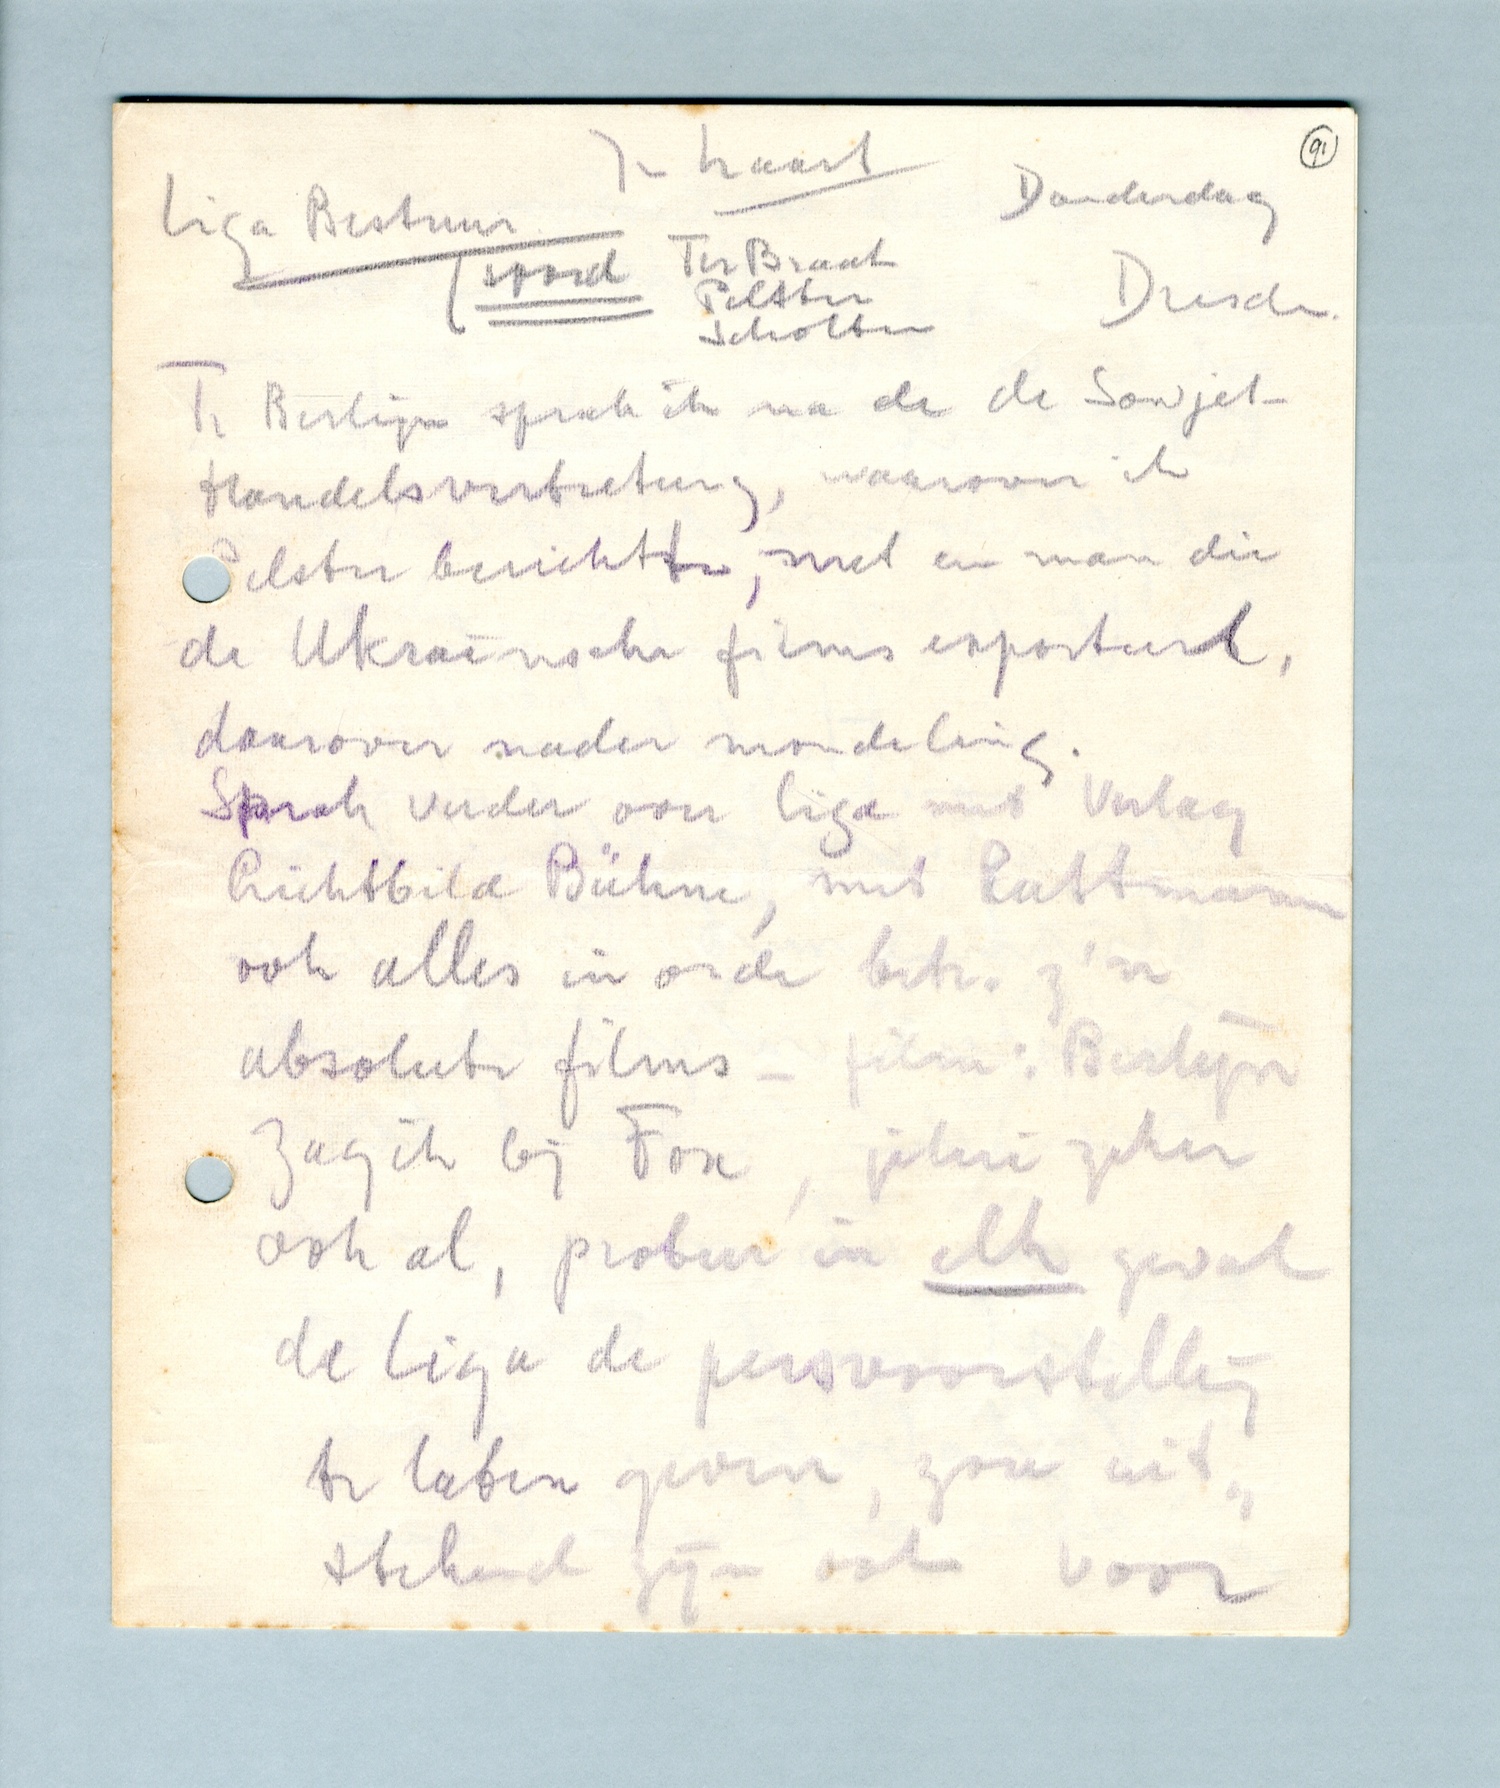 91
In haast
Donderdag
Liga Bestuur
Ter Braak
Pelster
Scholten
Dresden.
Te Berlijn sprak ik na de de Sowjet-
Handelsvertretung, waarover ik
Pelster berichtte, met een man die
de Ukraïnsche films exporteert,
daarover nader mondeling.
Sprak verder over liga met Verlag
Lichtbild Bühne, met Ruttmann
ook alles in orde betr. z'n
absolute films – film: Berlijn
zag ik bij Fox, jelui zeker
ook al, probeer in elk geval
de liga de persvoorstelling
te laten geven, zou uit-
stekend zijn ook voor